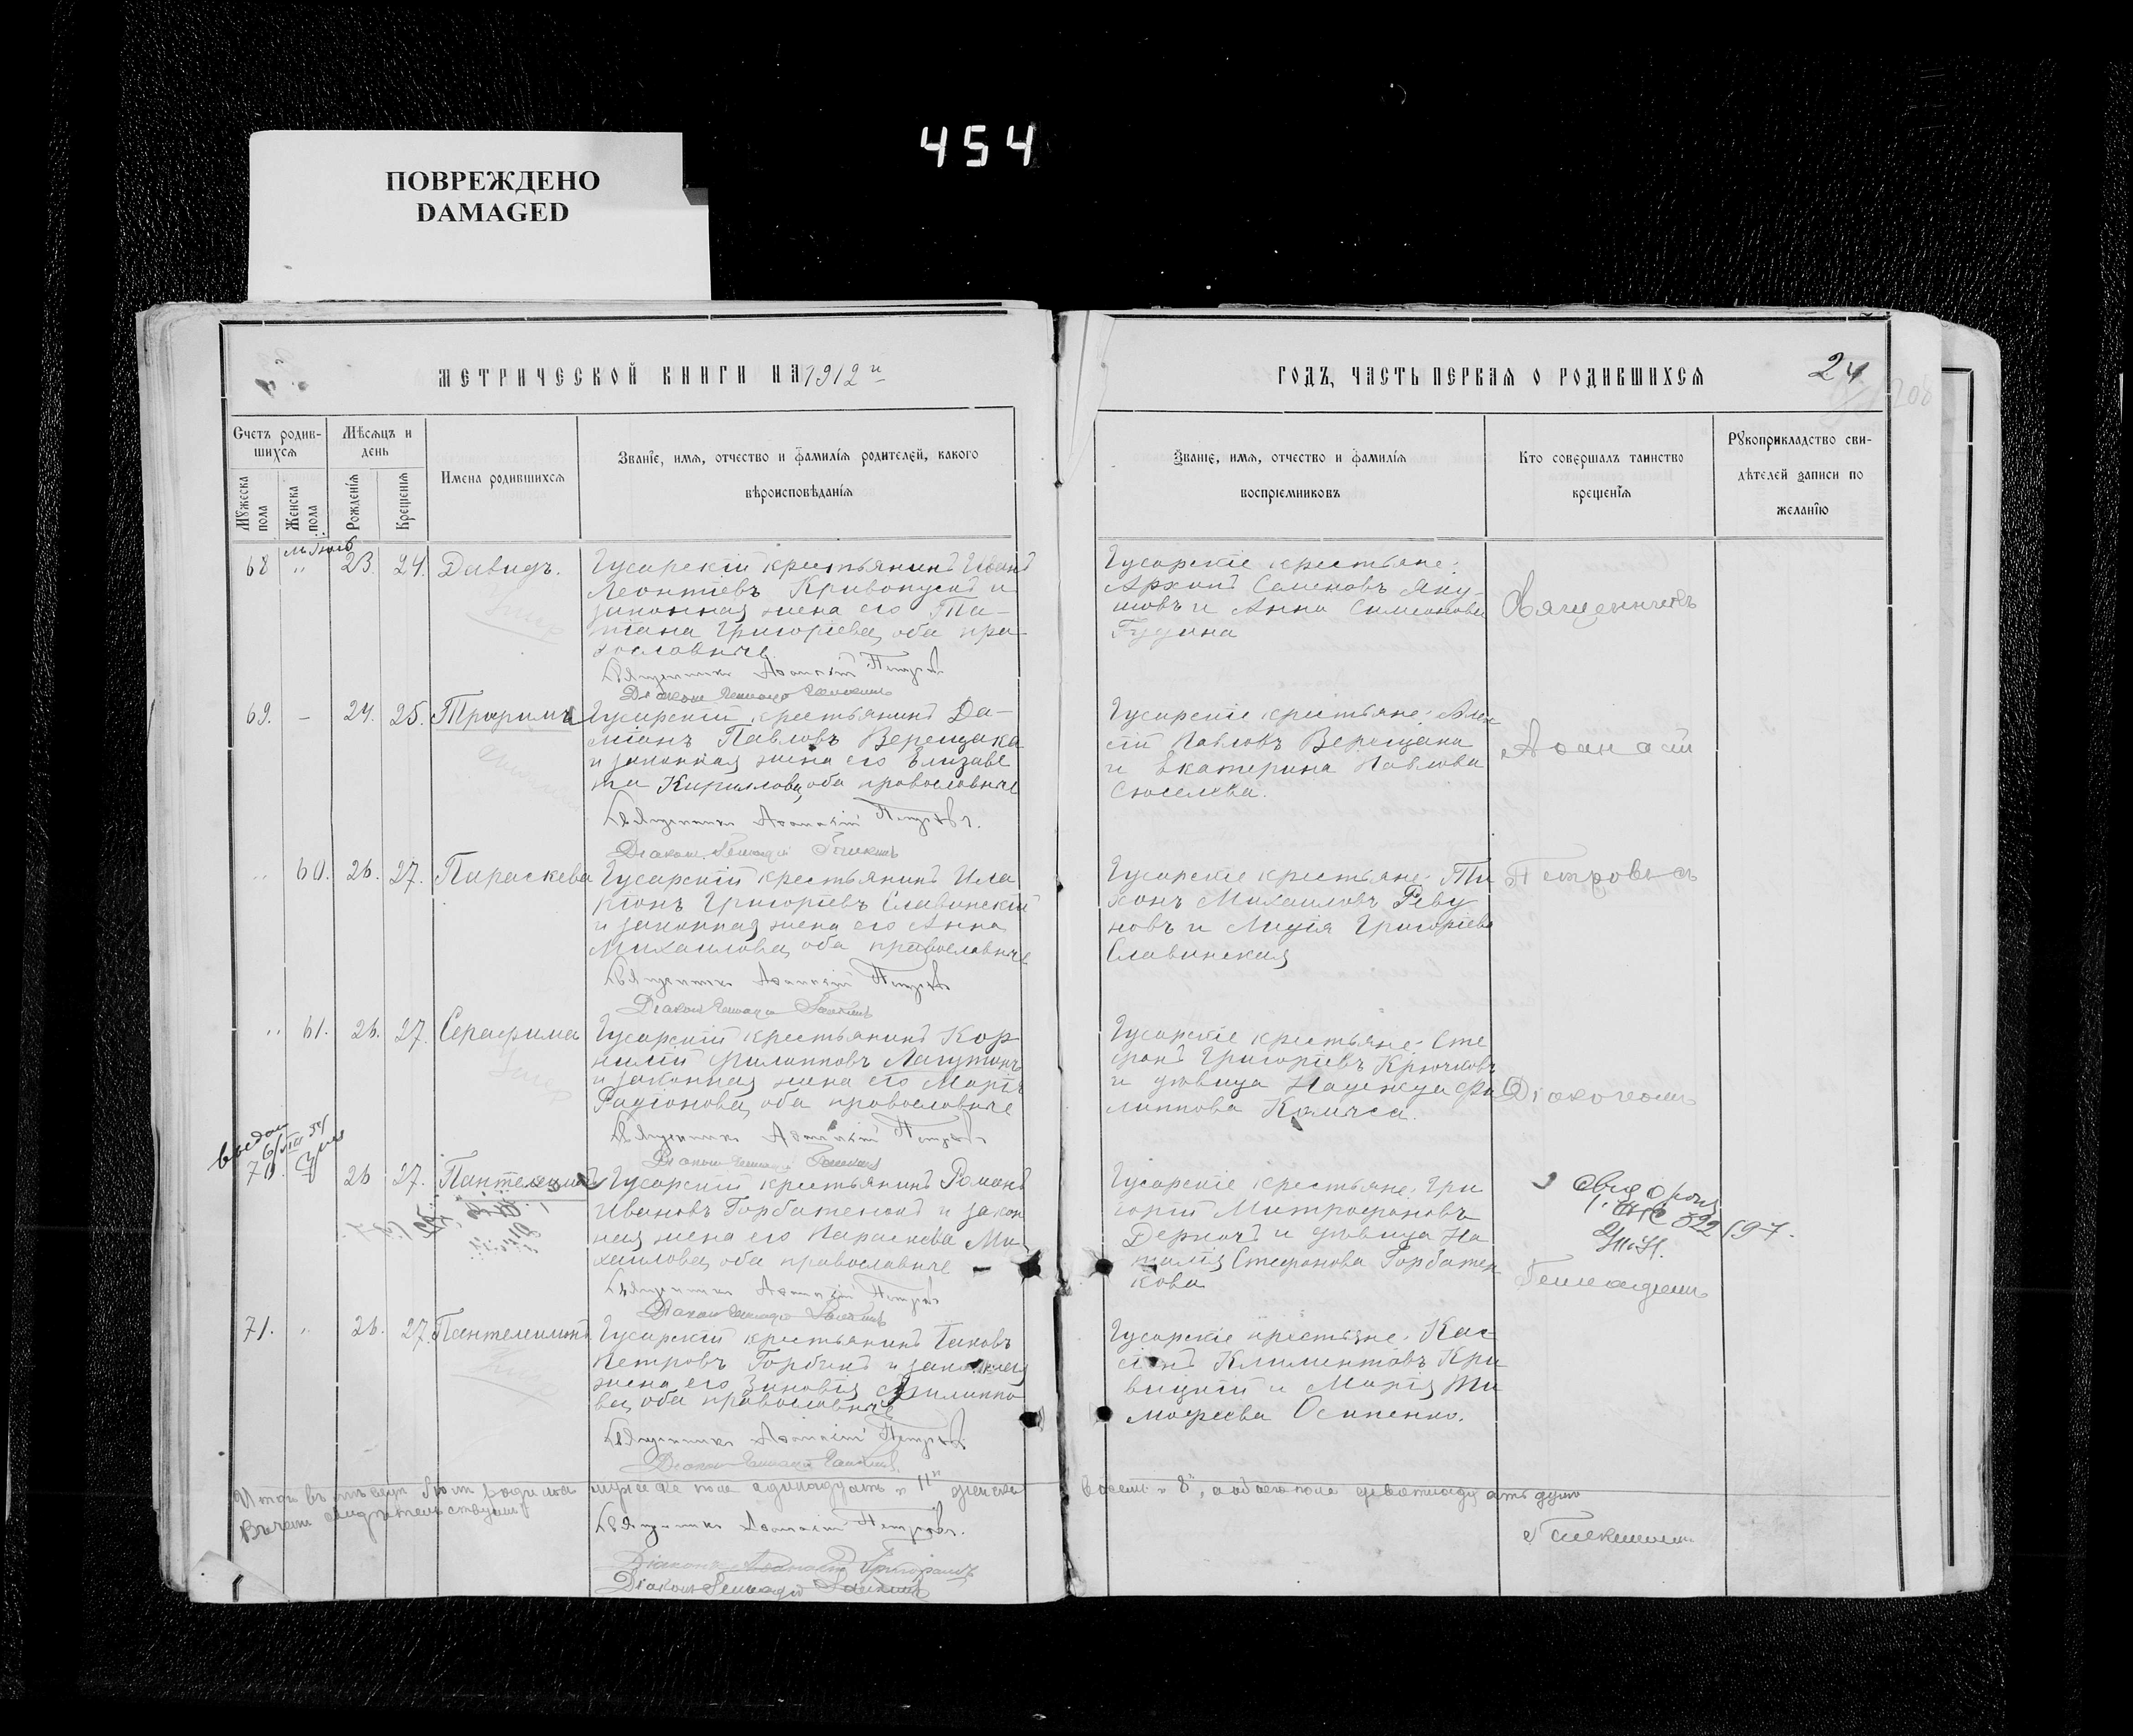 454
ПОВРЕЖДЕНО
DAMAGED
МЕТРИЧЕСКОЙ КНИГИ НА 1912й
ГОДЪ, ЧАСТЬ ПЕРВАЯ О РОДИВШИХСЯ
24
Счетъ родив-
шихся
Мѣсяцъ и
день
Мужеска
пола
Женска
пола
Рожденія
Крещенія
Имена родившихся
Званіе, имя, отчество и фамилія родителей, какого
вѣроисповѣданія
Званіе, имя, отчество и фамилія
воспріемниковъ
Кто совершалъ таинство
крещенія
Рукоприкладство сви-
дѣтелей записи по
желанію
68 " 23. 24. Давидъ.
Гусарскій крестьянинъ Иванъ
Леонтіевъ Кривопусъ и
законная жена его Та-
тіана Григоріева, оба пра-
вославные.
Священникъ Аѳанасій Петровъ
Діаконъ Геннадій
Гусарскіе крестьяне:
Архипъ Семеновъ Яку-
шовъ и Анна Симеонова
Гудина
Священникъ
69. – 24. 25. Трофимъ
Гусарскій крестьянинъ Да-
міанъ Павловъ Верещака
и законная жена его Елизаве
та Кириллова, оба православные
Священникъ Аѳанасій Петровъ.
Діаконъ Геннадій
Гусарскіе крестьяне: Алек
сій Павловъ Верещака
и Екатерина Павлова
Аѳанасій
" 60. 26. 27. Параскева
Гусарскій крестьянинъ Ила
ріонъ Григоріевъ Славинскій
и законная жена его Анна
Михаилова, оба православные
Священникъ Аѳанасій Петровъ
Діаконъ Геннадій
Гусарскіе крестьяне: Ти
хонъ Михаиловъ Реву
новъ и Лидія Григоріева
Славинская
Петровъ съ
" 61. 26. 27. Серафима
Гусарскій крестьянинъ Кор
нилій Филипповъ Лагутинъ
и законная жена его Марія
Радіонова, оба православные
Священникъ Аѳанасій Петровъ
Діаконъ Геннадій
Гусарскіе крестьяне: Сте
фанъ Григоріевъ Крючковъ
и дѣвица Надежда Фи
липпова
Діакономъ
70. 26 27. Пантелеимонъ
Гусарскій крестьянинъ Романъ
Ивановъ Горбатенковъ и закон
ная жена его Параскева Ми
хаилова, оба православные
Священникъ Аѳанасій Петровъ
Діаконъ Геннадій
Гусарскіе крестьяне: Гри
горій Митрофановъ
Деркачъ и дѣвица На
талія Стефанова Горбатен
кова
Геннадіемъ
71. " 26. 27. Пантелеимонъ
Гусарскій крестьянинъ Іаковъ
Петровъ Горбикъ и законная
жена его Зиновія Филиппо
ва, оба православные
Священникъ Аѳанасій Петровъ
Діаконъ Геннадій
Гусарскіе крестьяне: Кас
сіанъ Климентовъ Кри
вицкій и Марія Ти
мофеева Осипенко.
Итого въ мѣсяцѣ Іюлѣ родилось мужеска пола одинадцать „11" женска восемь „8", а обоего пола девятнадцать душъ
Въ чемъ свидѣтельствуемъ
Священникъ Аѳанасій Петровъ.
Діаконъ Геннадій